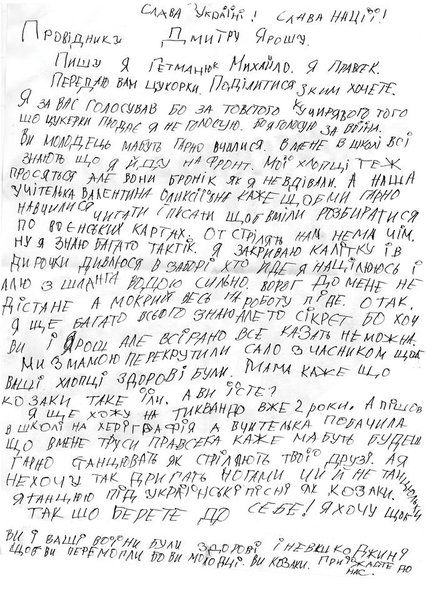 СЛАВА УКРАЇНІ! СЛАВА НАЦІЇ!
ПРОВІДНИКУ ДМИТРУ ЯРОШУ.
ПИШУ Я ГЕТМАНЦЮК МИХАЙЛО. Я ПРАВСЕК.
ПЕРЕДАЮ ВАМ ЦУКОРКИ. ПОДІЛИТИСЯ З КИМ ХОЧЕТЕ.
Я ЗА ВАС ГОЛОСУВАВ БО ЗА ТОВСТОГО КУЧИРЯВОГО ТОГО
ЩО ЦУКЕРКИ ПЮДАЄ Я НЕ ГОЛОСУЮ. БО Я ГОЛОСУЮ ЗА ВОЇНА.
ВИ МОЛОДЕЦЬ МАБУТЬ ГАРНО ВЧИЛИСЯ. В МЕНЕ В ШКОЛІ ВСІ
ЗНАЮТЬ ЩО Я ЙДУ НА ФРОНТ. МОЇ ХЛОПЦІ ТЕЖ
ПРОСЯТЬСЯ АЛЕ ВОНИ БРОНІК ЯК Я НЕВДІВАЛИ. А НАША
УЧІТЕЛЬКА ВАЛЕНТИНА ОЛИКСІЇВНА КАЖЕ ЩОБ МИ ГАРНО
НАВЧИЛИСЯ ЧИТАТИ І ПИСАТИ ЩОБ ВМІЛИ РОЗБИРАТИСЯ
ПО ВОЄНСЬКИХ КАРТАХ. ОТ СТРІЛЯТЬ НАМ НЕМА ЧІМ.
НУ Я ЗНАЮ БАГАТО ТАКТІК. Я ЗАКРИВАЮ КАЛІТКУ І В
ДИРОЧКИ ДИВЛЮСЯ В ЗАБОРІ ХТО ЙДЕ Я НАЦІЛЮЮСЬ І
ЛЛЮ З ШЛАНГА ВОДОЮ СИЛЬНО. ВОРОГ ДО МЕНЕ НЕ
ДІСТАНЕ А МОКРИЙ ВЕСЬ НА РОБОТУ ПІДЕ. ОТАК.
Я ЩЕ БАГАТО ВСЬОГО ЗНАЮ АЛЕ ТО СІКРЄТ БО ХОЧ
ВИ І ЯРОШ АЛЕ ВСІРАНО ВСЕ КАЗАТЬ НЕМОЖНА.
МИ З МАМОЮ ПЕРЕКРУТИЛИ САЛО З ЧАСНИКОМ ЩОБ
ВАШІ ХЛОПЦІ ЗДОРОВІ БУЛИ. МАМА КАЖЕ ЩО
КОЗАКИ ТАКЕ ЇЛИ. А ВИ ЇСТЕ?
Я ЩЕ ХОЖУ НА ТИКВАНДО ВЖЕ 2 РОКИ. А ПІШОВ
В ШКОЛІ НА ХЕРІГРАФІЯ А ВЧИТЕЛЬКА ПОБАЧИЛА
ЩО В МЕНЕ ТРУСИ ПРАВСЕКА КАЖЕ МАБУТЬ БУДЕШ
ГАРНО СТАНЦЮВАТЬ ЯК СТРІЛЯЮТЬ ТВОЇ ДРУЗІ. А Я
НЕХОЧУ ТАК ДРИГАТЬ НОГАМИ ЦИ Й НЕ ТАНЦЮЛЬКИ
Я ТАНЦЮЮ ПІД УКРАЇНСЬКІ ПІСНІ ЯК КОЗАКИ.
ТАК ШО БЕРЕТЕ ДО СЕБЕ! Я ХОЧУ ЩОБ
ВИ І ВАШІ ВОЇНИ БУЛИ ЗДОРОВІ І НЕВШКОДЖИНІ
ЩОБ ВИ ПЕРЕМОГЛИ БО ВИ МОЛОДЦІ. ВИ КОЗАКИ. ПРИЇЖЖАЙТЕ ДО
НАС.